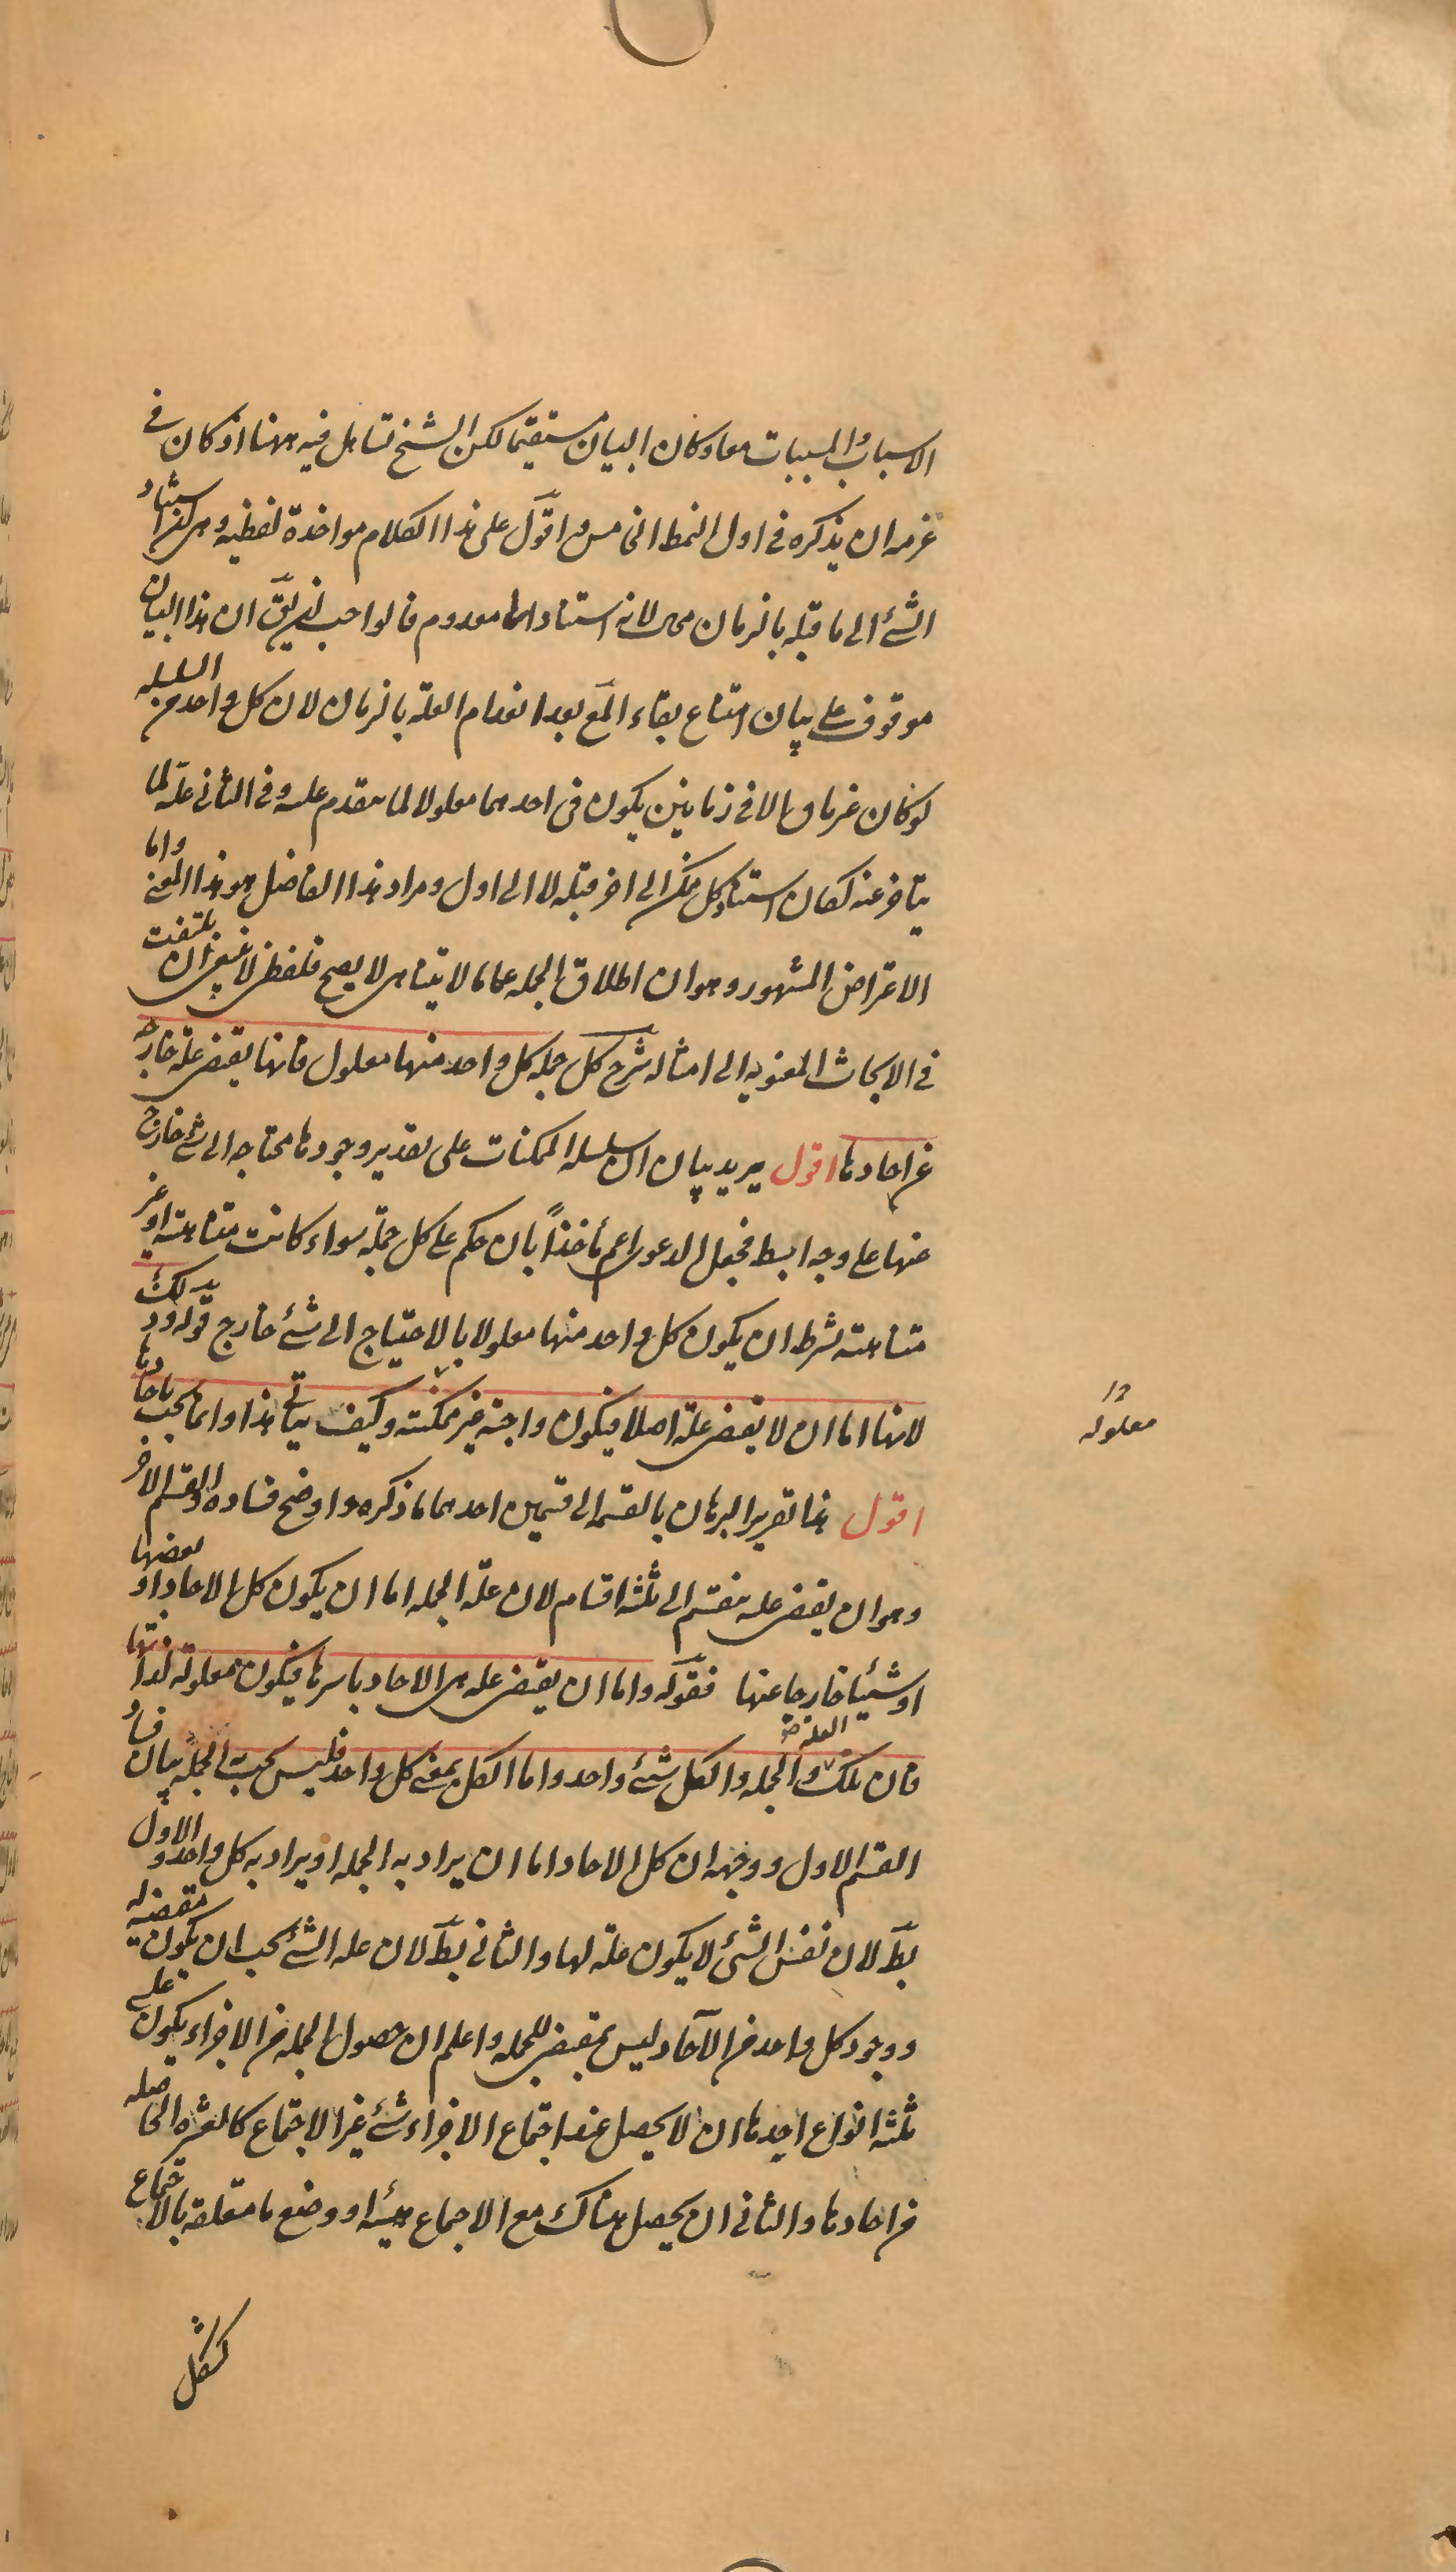 الاسباب والمسببات معا وكان البيان مستقيما لكن الشيخ تساهل فيه ههنا اذ كان في
عزمه ان يذكره في اول النمط الخامس واقول على هذا الكلام مواخذة لفظيه وهي ان استناد
الشئ الى ما قبله بالزمان محال لانه استناد الى معدوم فالواجب ان يق ان هذا البيان
موقوف على بيان امتناع بقاء المع بعد انعدام العلة بالزمان لان كل واحد من السلسله
لو كان غير باق الا في زمانين يكون فى احدهما معلولا لما يتقدم عليه وفي الثانى علة لما
يتاخر عنه لكان استناد كل ممكن الى اخر قبله لا الى اول ومراد هذا الفاضل هو هذا المعنى واما
الاعتراض المشهور وهو ان اطلاق الجمله على ما لا يتناهى لا يصح فلفظى لا ينبغي ان يلتفت
في الابحاث المعنويه الى امثاله شرح كل جمله كل واحد منها معلول فانها يقتضى علة خارجه
عن احادها اقول يريد بيان ان سلسله الممكنات على تقدير وجودها محتاجه الى شئ خارج
عنها على وجه ابسط فجعل الدعوى اعم مأخذاً بان حكم على كل جملة سواء كانت متناهيته او غير
متناهيته بشرط ان يكون كل واحد منها معلولا بالاحتياج الى شئ خارج قوله وذلك
لانها اما ان لا يقتضى علة اصلا فيكون واجبة غير ممكنته وكيف يتأتى هذا وانما يجب باحادها
معلوله
اقول هذا تقرير البرهان بالقسمه الى قسمين احدهما ما ذكره واوضح فساده والقسم الاخر
وهو ان يقتضى علة ينقسم الى ثلثه اقسام لان علة الجمله اما ان يكون كل الاحاد او بعضها
او شيئا خارجا عنها فقوله واما ان يقتضى علة هى الاحاد باسرها فيكون معلولة لذاتها
فان تلك العله والجمله والكل شئ واحد واما الكل بمعنى كل واحد فليس يجب به الجملة بيان فساد
القسم الاول ووجهه ان كل الاحاد اما ان يراد به الجمله او يراد به كل واحد والاول
بط لان نفس الشئ لا يكون علة لها والثاني بط لان علة الشئ يجب ان يكون مقتضيه له
ووجود كل واحد من الآحاد ليس بمقتض للجمله واعلم ان حصول الجمله من الاجزاء يكون على
ثلثه انواع احدها ان لا يحصل عند اجتماع الاجزاء شئ غير الاجتماع كالعشرة الحاصله
من احادها والثانى ان يحصل هناك مع الاجماع هيئه او وضع ما متعلقة بالاجتماع